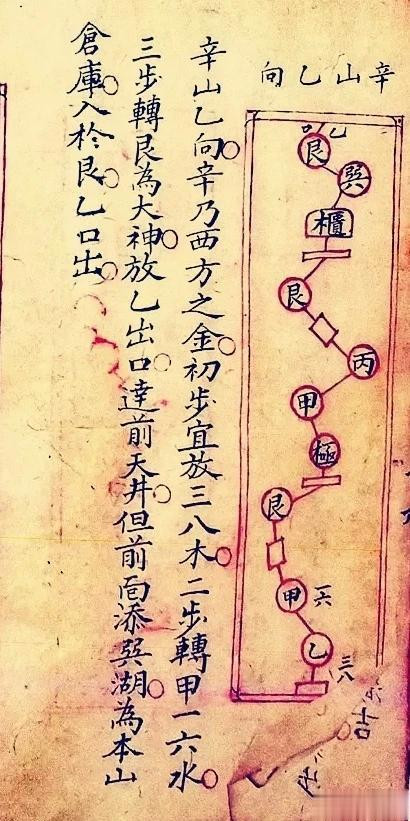 辛山乙向
乙口
艮
巽
櫃
艮
丙
甲
極
艮
甲
一六
乙
三八
吉
辛山乙向辛乃西方之金初步宜放三八木二步轉甲一六水
三步轉艮為大神放乙出口達前天井但前面添巽湖為本山
倉庫入於艮乙口出